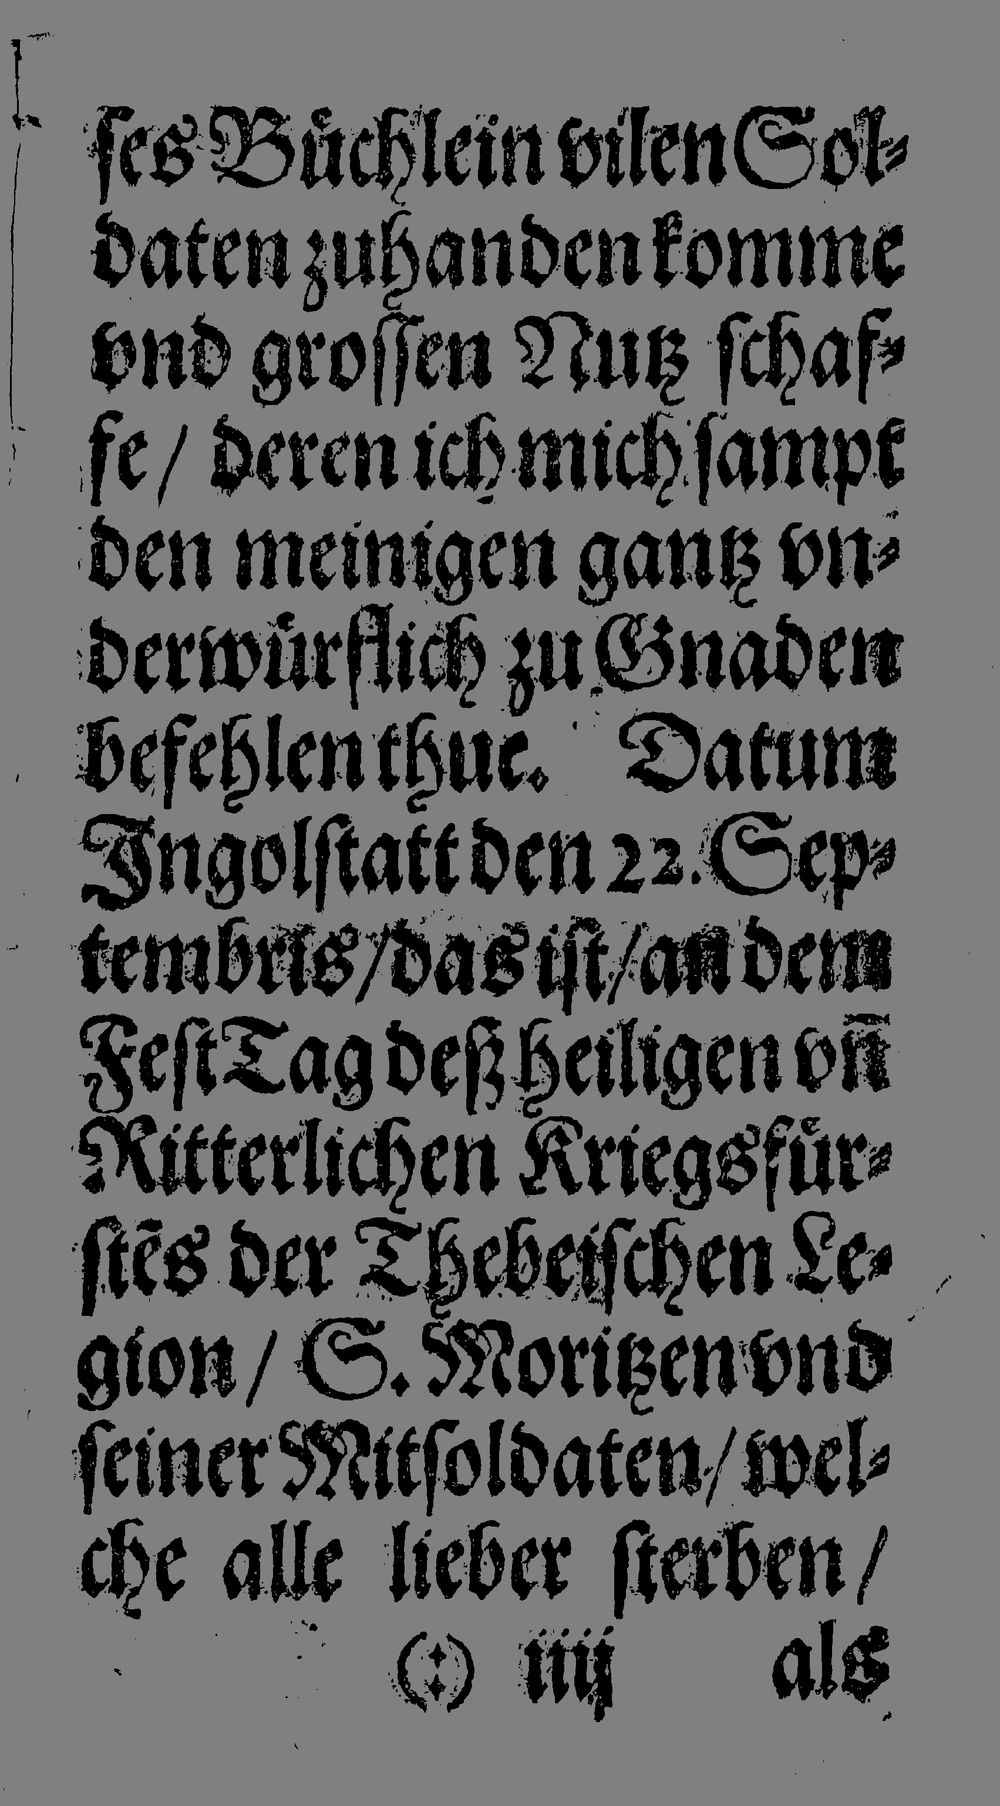 ſes Büchlein vilen Sol⸗
daten zuhanden komme
vnd groſſen Nutz ſchaf⸗
fe / deren ich mich ſampt
den meinigen gantz vn⸗
derwürflich zu Gnaden
befehlen thue. Datum
Jngolſtatt den 22. Sep⸗
tembris / das iſt / an dem
Feſt Tag deß heiligen vñ
Ritterlichen Kriegsfür⸗
ſtẽs der Thebeiſchen Le⸗
gion / S. Moritzen vnd
ſeiner Mitſoldaten / wel⸗
che alle lieber ſterben /
(:) iiij als